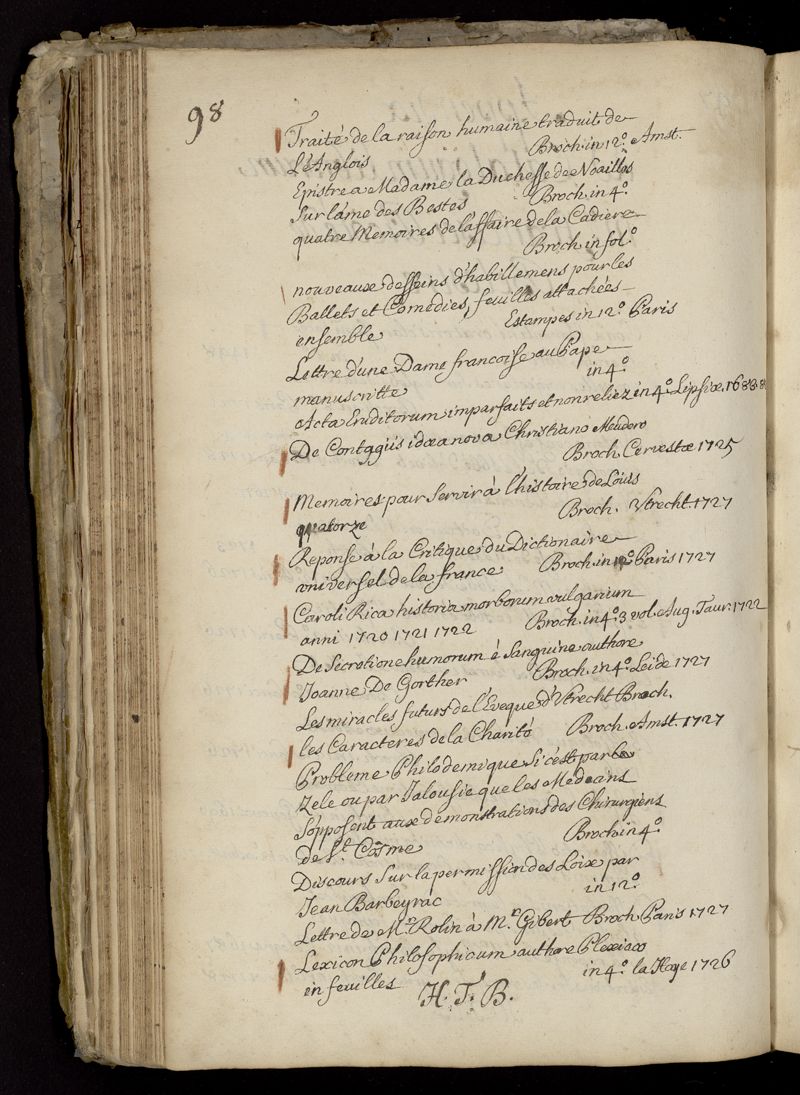 98
Traité de la raison humaine traduit de
L'Anglois Broch. in 12.° Amst.
Epistre a Madame la Duchesse de Noailles
Sur l'ame des Bestes Broch. in 4.°
quatre Memoires de l'affaire de la Cadiere
Broch in fol.°
nouveaux desseins d'habillemens pour les
Ballets et Comedies, feuilles attachées
ensemble Estampes in 12.° Paris
Lettre d'une Dame francoise au Pape
manuscritte in 4.°
Acta Eruditorum imparfaits et non reliez in 4.° Lipsiæ. 1683.
De Contagiis idæa nova Christiano Meudero
Broch Cervestæ 1725
Memoires pour Servir à l'histoire de Louis
quatorze Broch. Vtrecht. 1727
Reponse à la Critique du Dictionaire
vniversel de la france Broch. in 12° Paris 1727
Caroli Rica historia morborum vulganium
anni 1720 1721 1722 Broch. in 4.° 3 vol. Aug. Taur. 1722
De Secretione humorum è Sanguine authore
Joanne De Gorther Broch. in 4.° Leide 1727
Les miracles futurs de l'Eveque d'Vtrecht Broch.
les Caracteres de la Charité Broch. Amst. 1727
Probleme Philodemique Si c'est par le
Zele ou par Jalousie que les Medecins
S'opposent aux demonstrations des Chirurgiens
de S.t Cosme Broch in 4.°
Discours Sur la permission des Loix par
Jean Barbeyrac in 12.°
Lettre de M.r Rolin à M.r Gibert Broch Paris 1727
Lexicon Philosophicum authore Plexiaco
en feuilles in 4.° la Haye 1726
H. T. B.